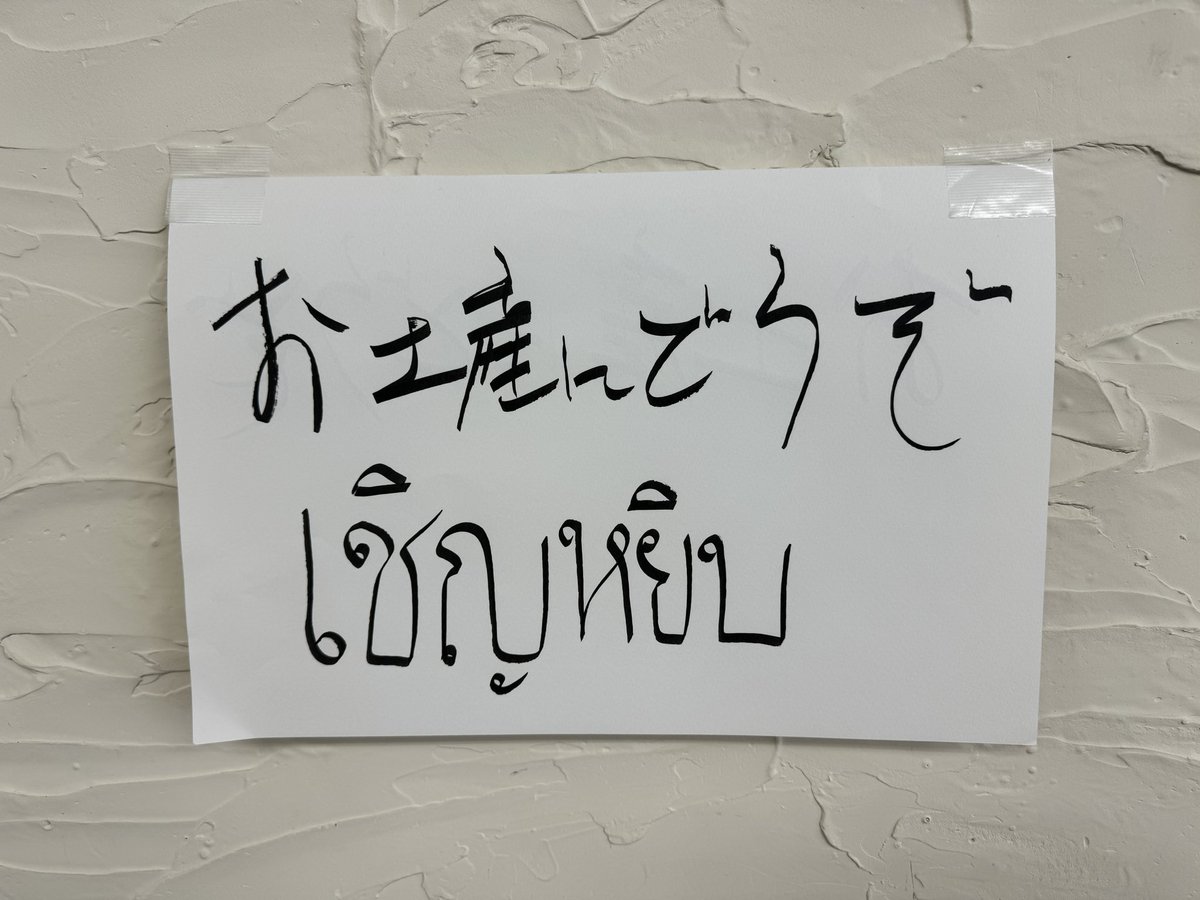 お土産にどうぞ
เชิญหยิบ